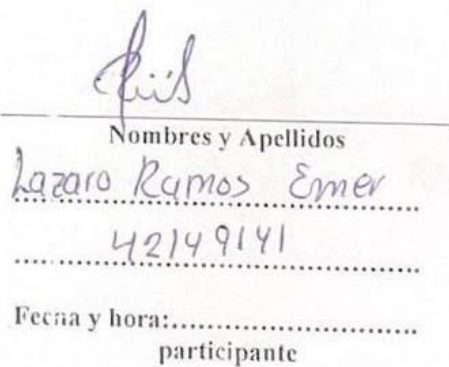 Nombres y Apellidos
Lazaro Ramos Emer
42149141
Fecha y hora:................................
participante